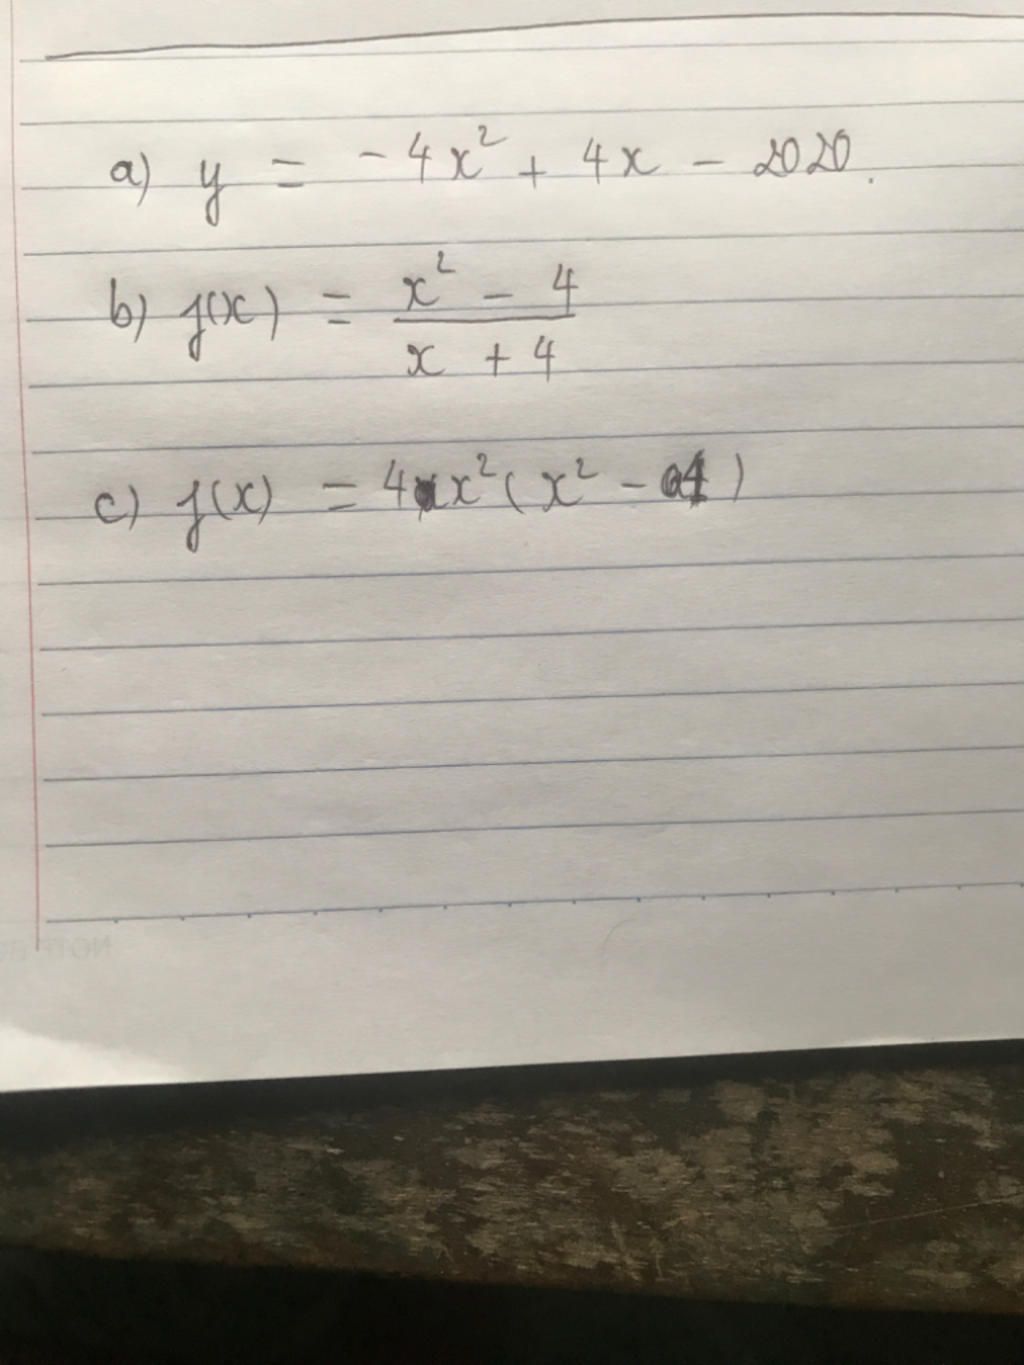 a) y = -4x² + 4x - 2020.
b) f(x) = \frac{x² - 4}{x + 4}
c) f(x) = 4x²(x² - 1)